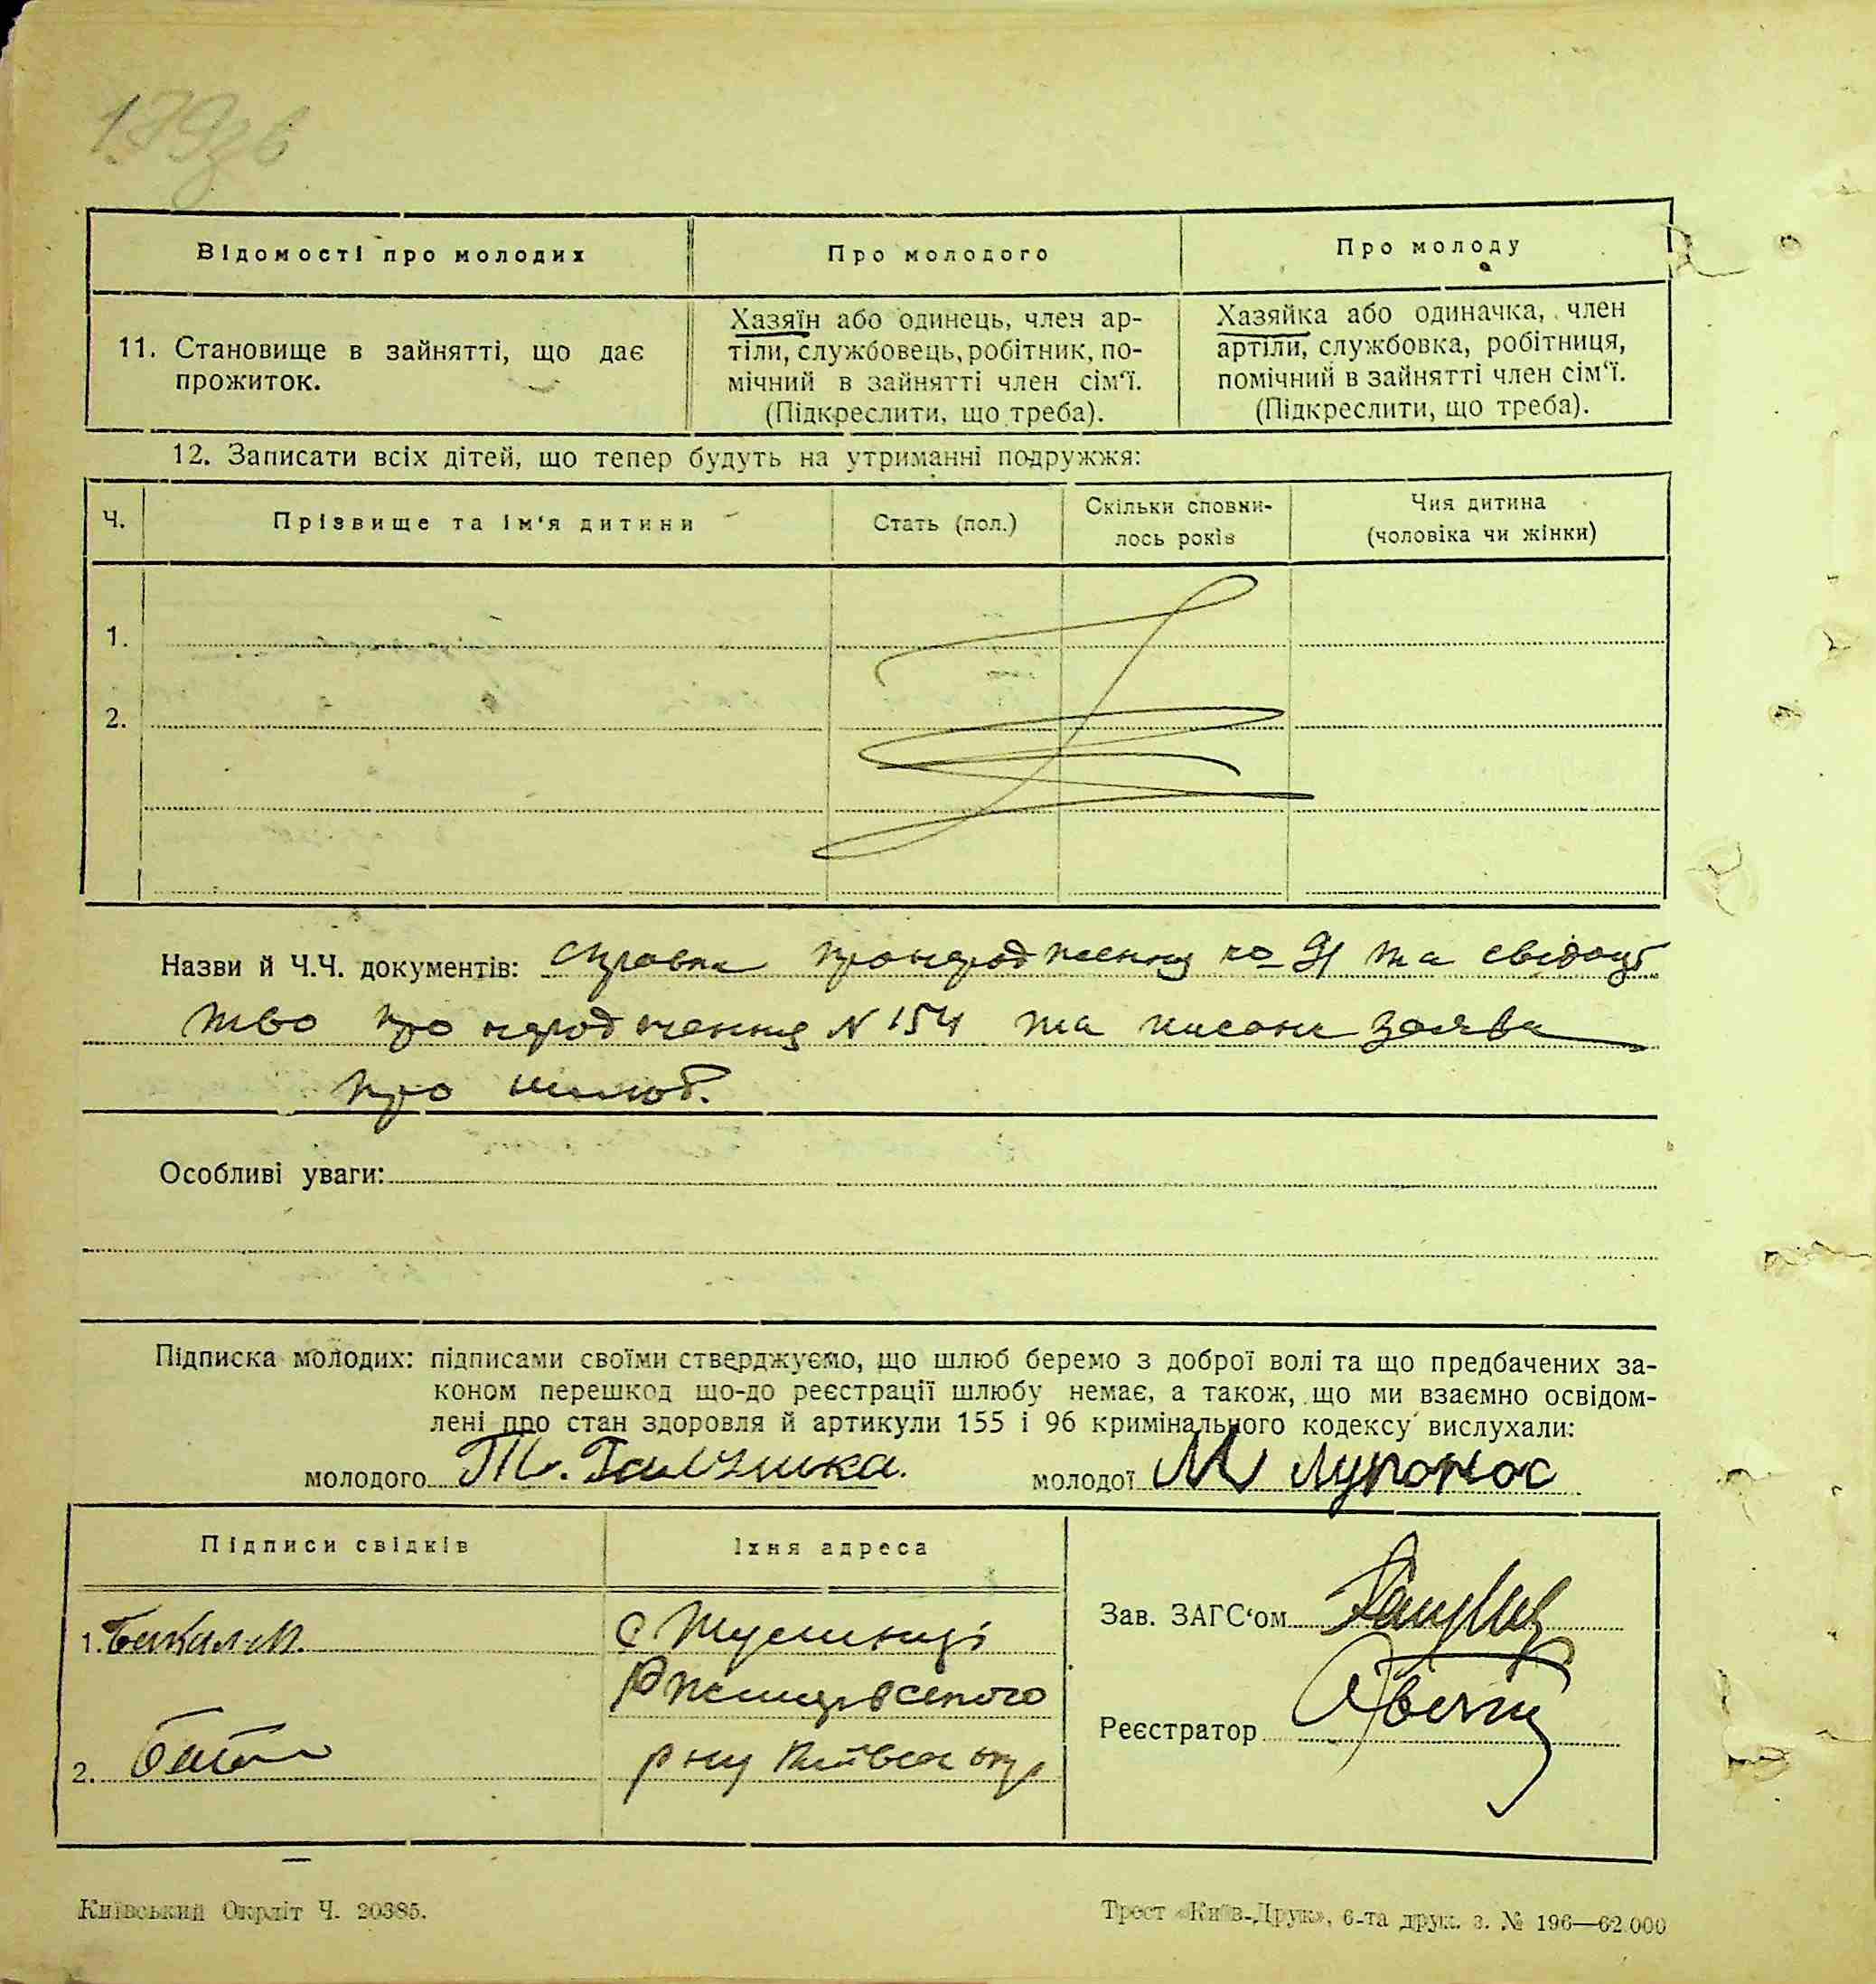 179зв
Відомості про молодих
Про молодого
Про молоду
11. Становище в зайнятті, що дає
прожиток.
Хазяїн або одинець, член ар-
тіли, службовець, робітник, по-
мічний в зайнятті член сім'ї.
(Підкреслити, що треба).
Хазяйка або одиначка, член
артіли, службовка, робітниця,
помічний в зайнятті член сім'ї.
(Підкреслити, що треба).
12. Записати всіх дітей, що тепер будуть на утриманні подружжя:
Ч.
Прізвище та ім'я дитини
Стать (пол.)
Скільки сповни-
лось років
Чия дитина
(чоловіка чи жінки)
1.
2.
Назви й Ч.Ч. документів: справка про народження та свідоцт
тво про народження N 154 та писана заява
про шлюб.
Особливі уваги:
Підписка молодих: підписами своїми стверджуємо, що шлюб беремо з доброї волі та що предбачених за-
коном перешкод що-до реєстрації шлюбу немає, а також, що ми взаємно освідом-
лені про стан здоровля й артикули 155 і 96 кримінального кодексу вислухали:
молодого
молодої М Лупонос
Підписи свідків
Їхня адреса
1.
с
Ржищівського
2.
р ну Київськ окр
Зав. ЗАГС'ом
Реєстратор
Київський Окрліт Ч. 20385.
Трест «Київ-Друк», 6-та друк. з. № 196—62.000